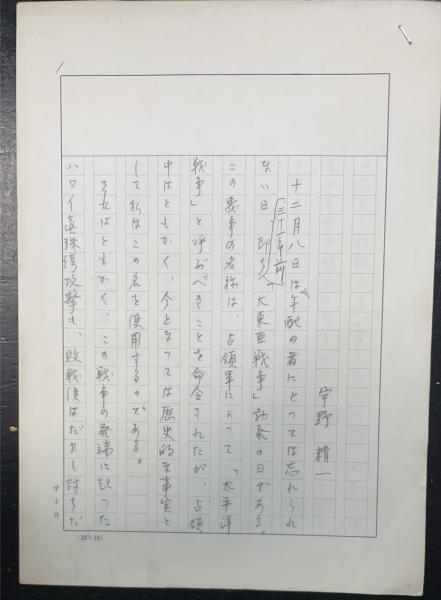 宇野精一
十二月八日は年配の者にとつては忘れられ
三十三年前
ない日、即ち「大東亜戦争」勃発の日である。
この戦争の名称は、占領軍によつて「太平洋
戦争」と呼ぶべきことを命令されたが、占領
中はともかく、今となつては歴史的な事実と
して私はこの名を使用するのである。
それはともかく、この戦争の発端に起つた
ハワイ真珠湾攻撃も、敗戦後はだまし討ちだ
学士会
(20×10)